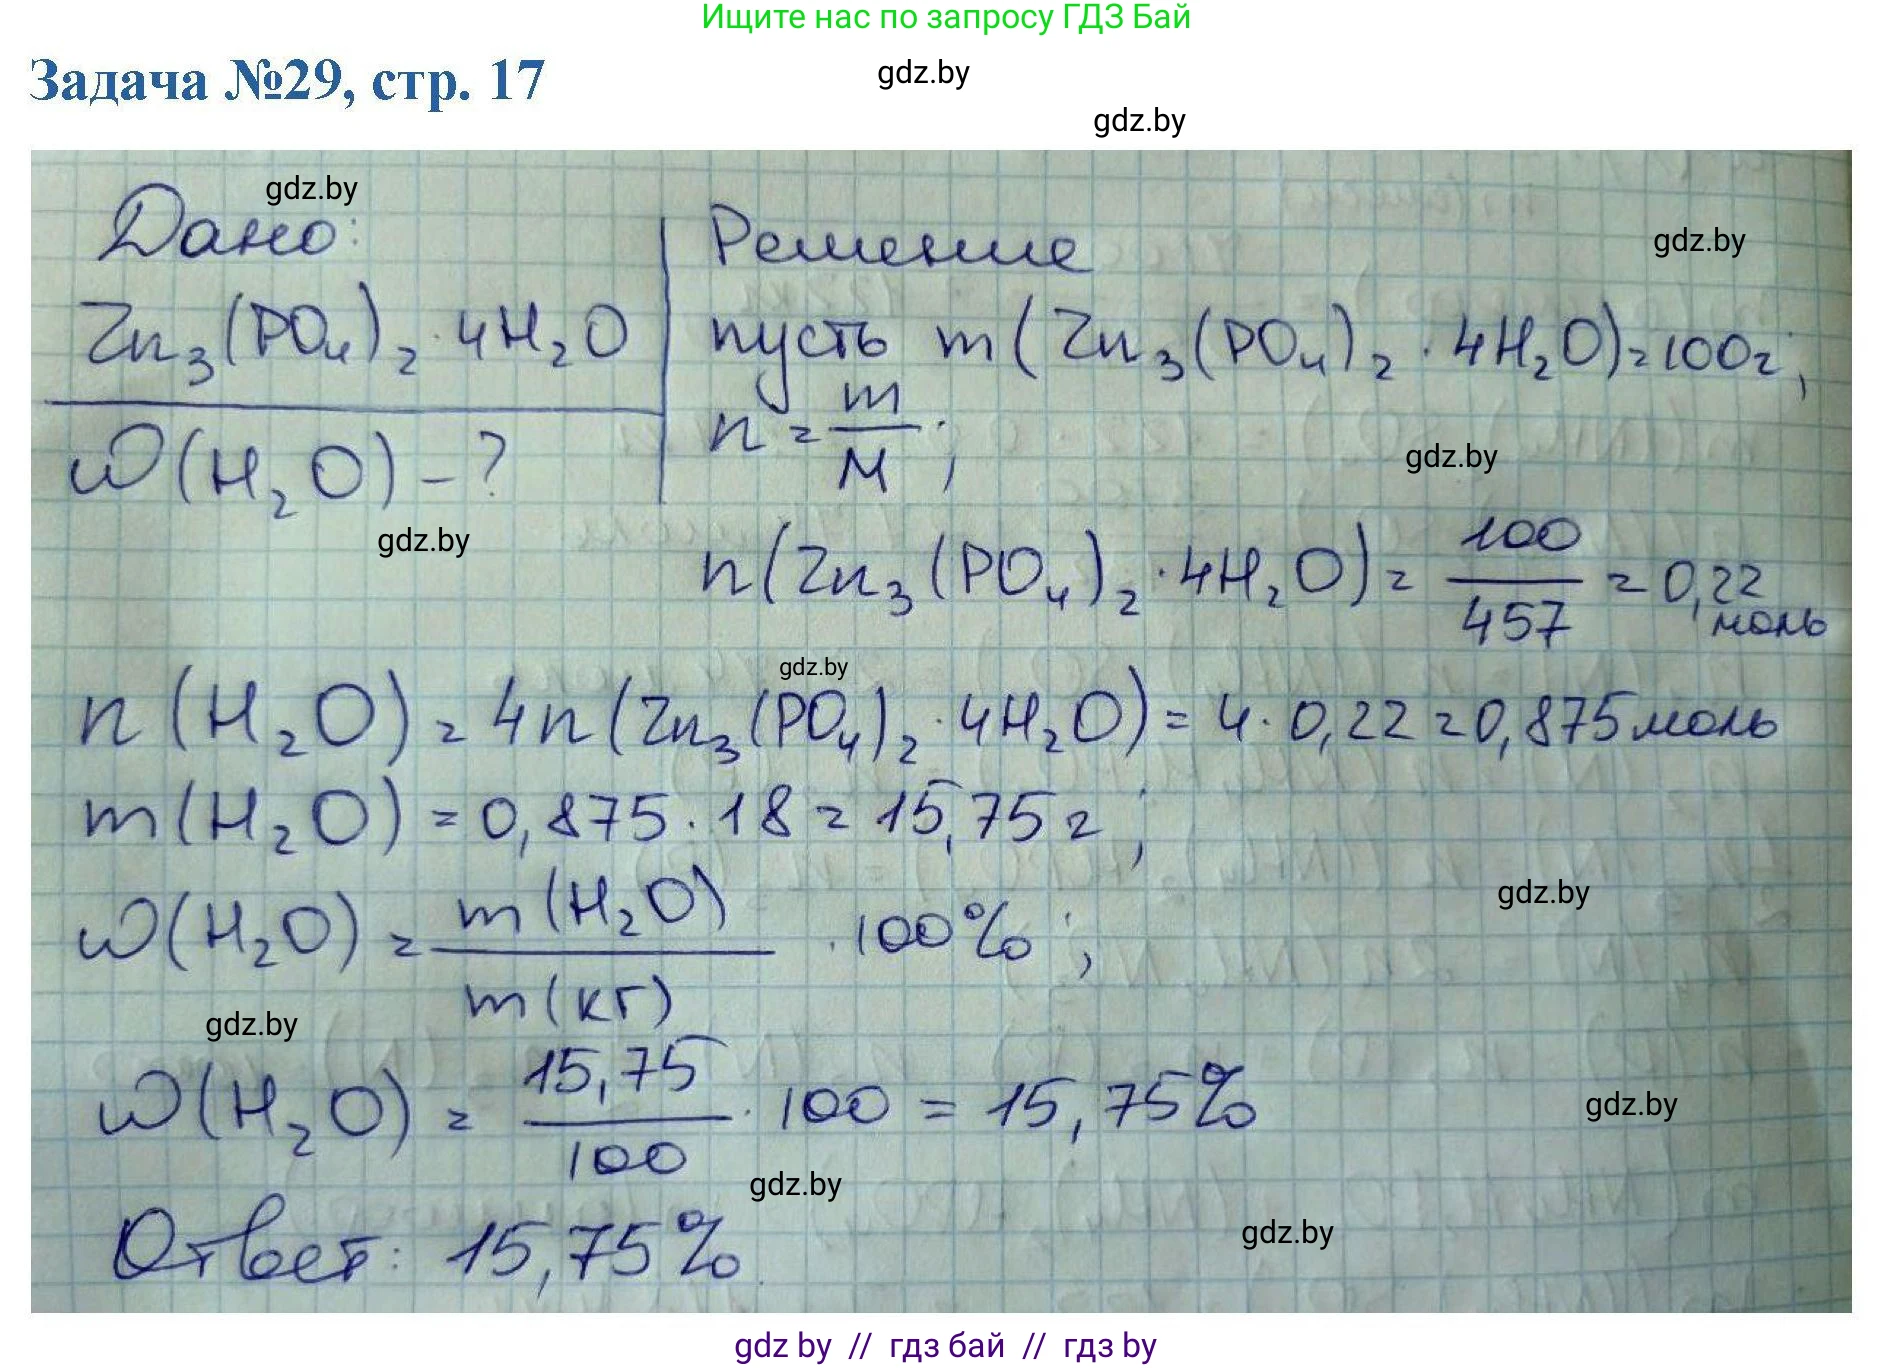 Ищите нас по запросу ГДЗ Бай
Задача №29, стр. 17
gdz.by
gdz.by
gdz.by
Дано:
Zn₃(PO₄)₂·4H₂O
W(H₂O) – ?
gdz.by
Решение
gdz.by
пусть m(Zn₃(PO₄)₂·4H₂O)=100г;
n = m/M;
gdz.by
n(Zn₃(PO₄)₂·4H₂O) = 100/457 = 0,22 моль
gdz.by
n(H₂O) = 4n(Zn₃(PO₄)₂·4H₂O) = 4·0,22 = 0,875 моль
m(H₂O) = 0,875·18 = 15,75 г;
gdz.by
W(H₂O) = m(H₂O)/m(кг) · 100%;
gdz.by
W(H₂O) = 15,75/100 · 100 = 15,75%
gdz.by
gdz.by
Ответ: 15,75%
gdz.by
gdz by // гдз бай // гдз by